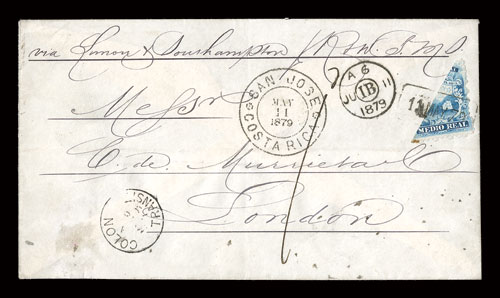 via Limon & Southampton / R.M.S.
SAN JOSE
MAY
11
1879
COSTA RICA
A 6
IB
JU 11
1879
MEDIO REAL
Messrs
C. de Murrieta & Co
London
1
COLON
TRANSIT